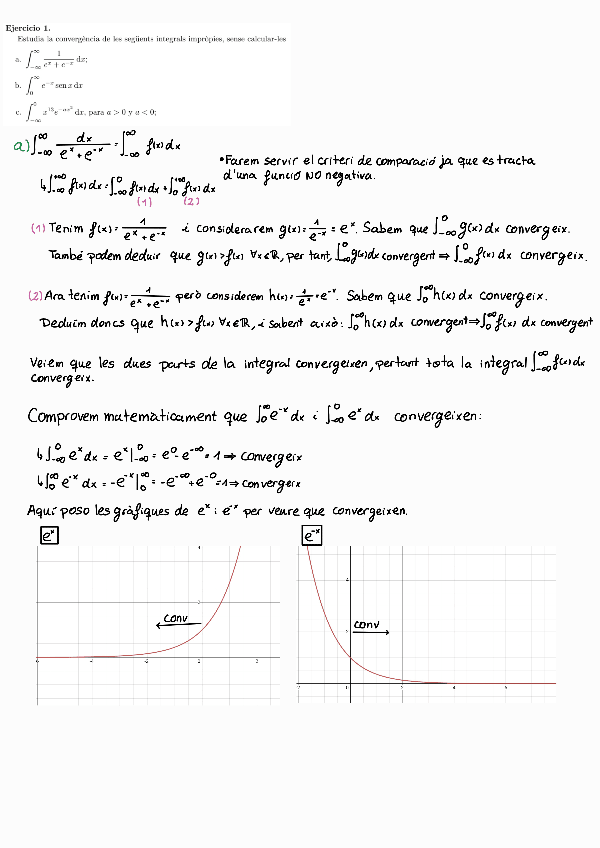 Ejercicio 1.
Estudia la convergència de les següents integrals impròpies, sense calcular-les
a. ∫_{-∞}^{∞} 1/(e^x + e^{-x}) dx;
b. ∫_0^∞ e^{-x} sen x dx
c. ∫_{-∞}^0 x^{13} e^{-ax^2} dx, para a > 0 y a < 0;
a) ∫_{-∞}^{∞} dx/(e^x + e^{-x}) = ∫_{-∞}^{∞} f(x) dx
• Farem servir el criteri de comparació ja que es tracta
d'una funció NO negativa.
↳ ∫_{-∞}^{+∞} f(x) dx = ∫_{-∞}^0 f(x) dx + ∫_0^{+∞} f(x) dx
(1) (2)
(1) Tenim f(x) = 1/(e^x + e^{-x}) i considerarem g(x) = 1/e^{-x} = e^x. Sabem que ∫_{-∞}^0 g(x) dx convergeix.
També podem deduir que g(x) > f(x) ∀x∈ℝ, per tant, ∫_{-∞}^0 g(x) dx convergent ⇒ ∫_{-∞}^0 f(x) dx convergeix.
(2) Ara tenim f(x) = 1/(e^x + e^{-x}) però considerem h(x) = 1/e^x = e^{-x}. Sabem que ∫_0^∞ h(x) dx convergeix.
Deduim doncs que h(x) > f(x) ∀x∈ℝ, i sabent això: ∫_0^∞ h(x) dx convergent ⇒ ∫_0^∞ f(x) dx convergent
Veiem que les dues parts de la integral convergeixen, pertant tota la integral ∫_{-∞}^{∞} f(x) dx
convergeix.
Comprovem matemàticament que ∫_0^∞ e^{-x} dx i ∫_{-∞}^0 e^x dx convergeixen:
↳ ∫_{-∞}^0 e^x dx = e^x |_{-∞}^0 = e^0 - e^{-∞} = 1 ⇒ convergeix
↳ ∫_0^∞ e^{-x} dx = -e^{-x} |_0^∞ = -e^{-∞} + e^{-0} = 1 ⇒ convergeix
Aquí poso les gràfiques de e^x i e^{-x} per veure que convergeixen.
e^x
e^{-x}
conv
conv